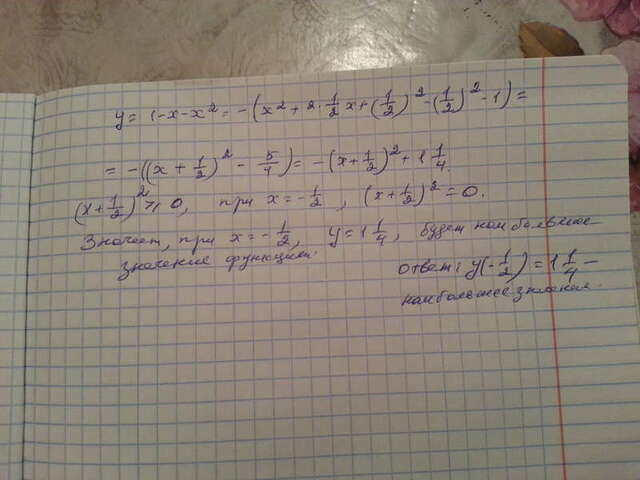 y = 1-x-x² = -(x² + 2·1/2 x + (1/2)² - (1/2)² - 1) =
= -((x + 1/2)² - 5/4) = -(x + 1/2)² + 1 1/4.
(x + 1/2)² ≥ 0, при x = -1/2, (x + 1/2)² = 0.
Значит, при x = -1/2, y = 1 1/4, будет наибольшее
значение функции.
ответ: y(-1/2) = 1 1/4 —
наибольшее значение.